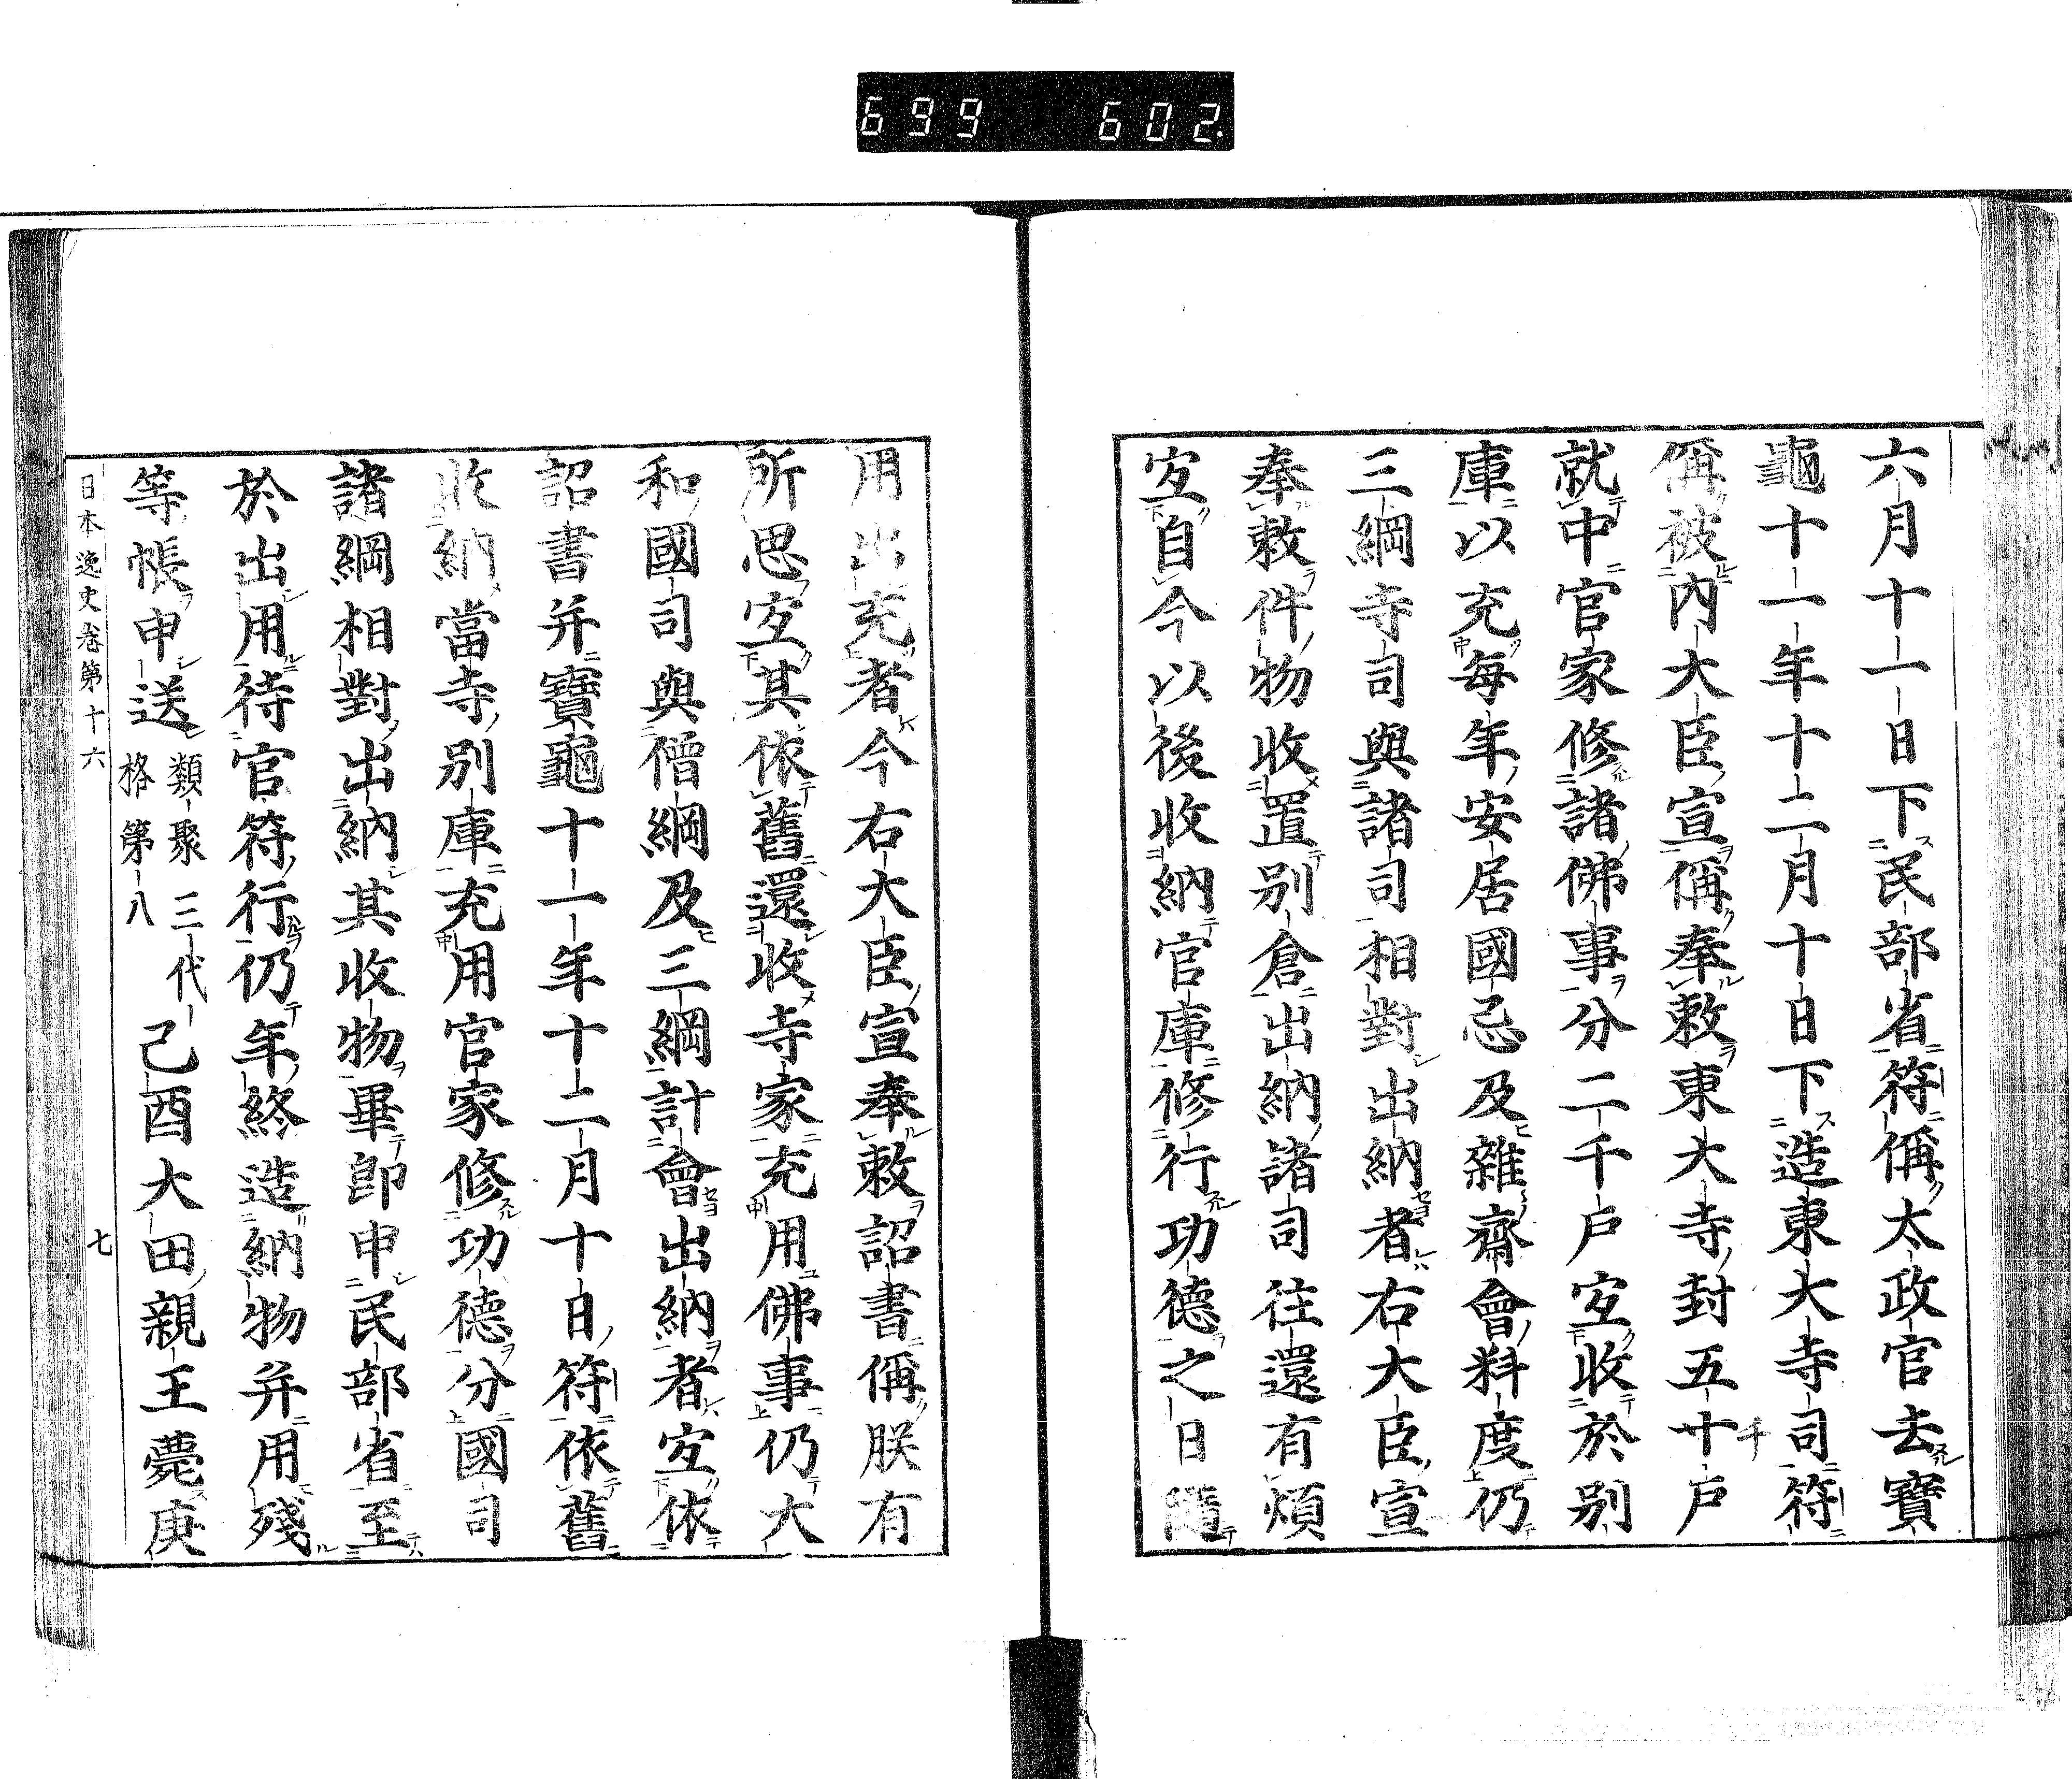 699 602
六月十一日下民部省符偁太政官去寶
龜十一年十二月十日下造東大寺司符
偁被內大臣宣偁奉敕東大寺封五十戶
千
就中官家修諸佛事分二千戶宐收於別
庫以充每年安居國忌及雜齋會料度仍
三綱寺司與諸司相對出納者右大臣宣
奉敕件物收置別倉出納諸司往還有煩
宐自今以後收納官庫修行功德之日隨
用出充者今右大臣宣奉敕詔書偁朕有
所思宐其依舊還收寺家充用佛事仍大
和國司與僧綱及三綱計會出納者宐依
詔書并寶龜十一年十二月十日符依舊
收納當寺別庫充用官家修功德分國司
諸綱相對出納其收物畢卽申民部省至
於出用待官符行仍年終造納物并用殘
等帳申送類聚三代格第八己酉大田親王薨庚
日本逸史卷第十六 七